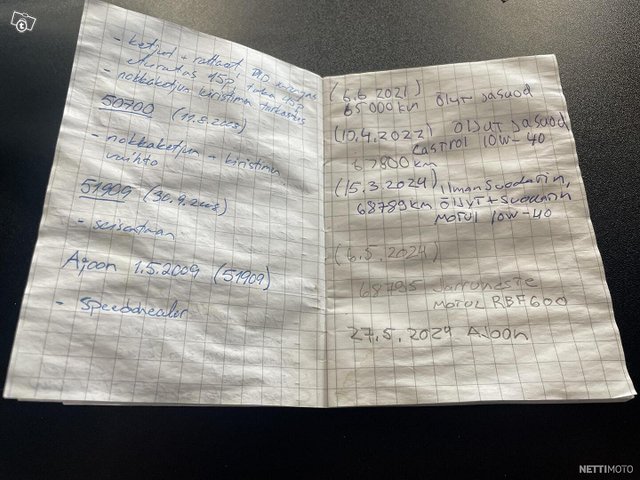 - ketjut + rattaat DID
eturatas 15p, taka
- nokkaketjun kiristimen tarkastus
50700 (11.8.2008)
- nokkaketjun - kiristimen
vaihto
51909 (30.9.2008)
- seisontaan
Ajoon 1.5.2009 (51909)
- speedohealer
(6.6.2021)
65000km öljyt ja suod
(10.4.2022) öljyt ja suod
Castrol 10W-40
67800km
(15.3.2024) ilmansuodatin,
68789km öljyt + suodatin
motul 10W-40
(6.5.2024)
68795 Jarruneste
motul RBF600
27.5.2024 Ajoon
NETTIMOTO